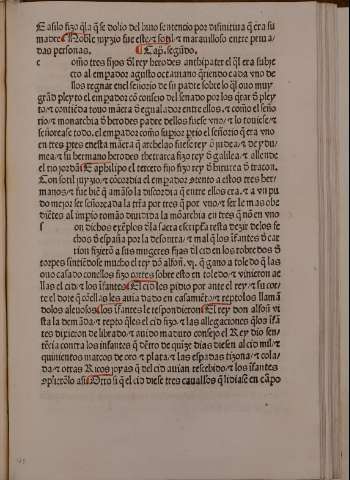 E asilo fizo q̃l a q̃ se dolio del huio sentencio por difinitiua q̃ era su
madre Noble juyzio fue este ⁊ sotil ⁊ marauilloso entre priua
das personas. ¶ Cap. segũdo.
c omo tres fijos d̃l rey herodes anthipater el q̃l era subie
cto al emperador agusto octauiano q̃riendo cada vno de
llos regnar en el señorio de su padre sobre lo q̃l ouo muy
grãd pleyto el emperador cõ conseio del senado por los q̃tar d̃ pley
to ⁊ contiẽda touo manera d̃ egualador entre ellos. ⁊ como el seño
rio ⁊ monarchia d̃ herodes padre dellos fuese vno ⁊ lo touiese ⁊
señorease todo. el emperador como supior ptio el señorio q̃ era vno
en tres ptes en esta manera q̃ archelao fuese rey d̃ judea ⁊ de ydu
mea ⁊ su hermano herodes thetrarca fizo rey d̃ galilea ⁊ allende
el rio jordan E aphilipo el tercero fijo fizo rey d̃ bituria ⁊ tracon.
Con sotil juyzio ⁊ cõcordia el emperador atento a estos tres her
manos ⁊ fue biẽ q̃ amãso la discordia q̃ entre ellos era. ⁊ a vn pu
do mejor ser señoreada la trã por tres q̃ por vno ⁊ ser le mas obe
diẽtes al impio romão diuidida la mõarchia en tres q̃ nõ en vno
s on dichos exẽplos d̃la sacra escriptra resta dezir delos fe
chos d̃ españa por la desonrra ⁊ mal q̃ los ifantes d̃ car
rion fizierõ a sus mugeres fijas d̃l cid en los robredos d̃
torpes sintiẽdose mucho el rey dõ alfon. vj. q̃ gano a toledo q̃ las
ouo casado con ellos fizo cortes sobre esto en toledo ⁊ vinieron ae
llas el cid ⁊ los ifantes El cid les pidio por ante el rey ⁊ su cor
te el dote q̃ cõ ellas les auia dado en casamiẽto ⁊ reptolos llamã
dolos aleuosos los ifantes le respondieron El rey don alfon vi
sta la demãda ⁊ repto q̃les el cid fizo ⁊ las allegaciones q̃los ifã
tes dixieron de librado ⁊ auido maduro consejo el Rey dio sen
tẽcia contra los infantes q̃ dẽtro de quĩze dias diesen al cid mil ⁊
quinientos marcos de oro ⁊ plata ⁊ las espadas tizona ⁊ cola
da ⁊ otras Ricos joyas q̃ del cid auian rescebido ⁊ los ifantes
cũplierõlo asi Otro si q̃ el cid diese tres cauallos q̃ lidiasẽ en cãpo